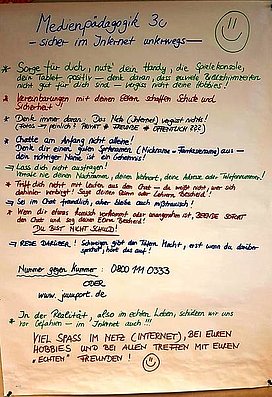 Medienpädagogik 3c
- sicher im Internet unterwegs -
* Sorge für dich, nutz' dein Handy, die Spielekonsole,
dein Tablet positiv - denk daran, dass zuviele Bildschirmzeiten
nicht gut für dich sind - vergiss nicht deine Hobbies!
* Vereinbarungen mit deinen Eltern schaffen Schutz und
Sicherheit
* Denk immer daran: Das Netz (Internet) vergisst nichts!
(Fotos - peinlich? PRIVAT FREUNDE ÖFFENTLICH ???)
* Chatte am Anfang nicht alleine!
Denk dir einen guten Spitznamen (Nickname = Fantasiename) aus -
dein richtiger Name ist ein Geheimnis!
⇒ Lass dich nicht ausfragen!
Verrate nie deinen Nachnamen, deinen Wohnort, deine Adresse oder Telefonnummer!
* Triff dich nicht mit Leuten aus dem Chat - du weißt nicht, wer sich
dahinter verbirgt! Sage deinen Eltern oder Lehrern Bescheid!
⇒ Sei im Chat freundlich, aber bleibe auch mißtrauisch!
* Wenn dir etwas komisch vorkommt oder unangenehm ist, BEENDE SOFORT
den Chat und sag deinen Eltern Bescheid!
DU BIST NICHT SCHULD!
⇒ REDE DARÜBER! Schweigen gibt den Tätern Macht, erst wenn du darüber
sprichst, hört das auf!
Nummer gegen Kummer: 0800 111 0333
ODER
www.juuuport.de
* In der Realität, also im echten Leben, schützen wir uns
vor Gefahren - im Internet auch!!!
VIEL SPASS IM NETZ (INTERNET), BEI EUREN
HOBBIES UND BEI ALLEN TREFFEN MIT EUREN
"ECHTEN" FREUNDEN!